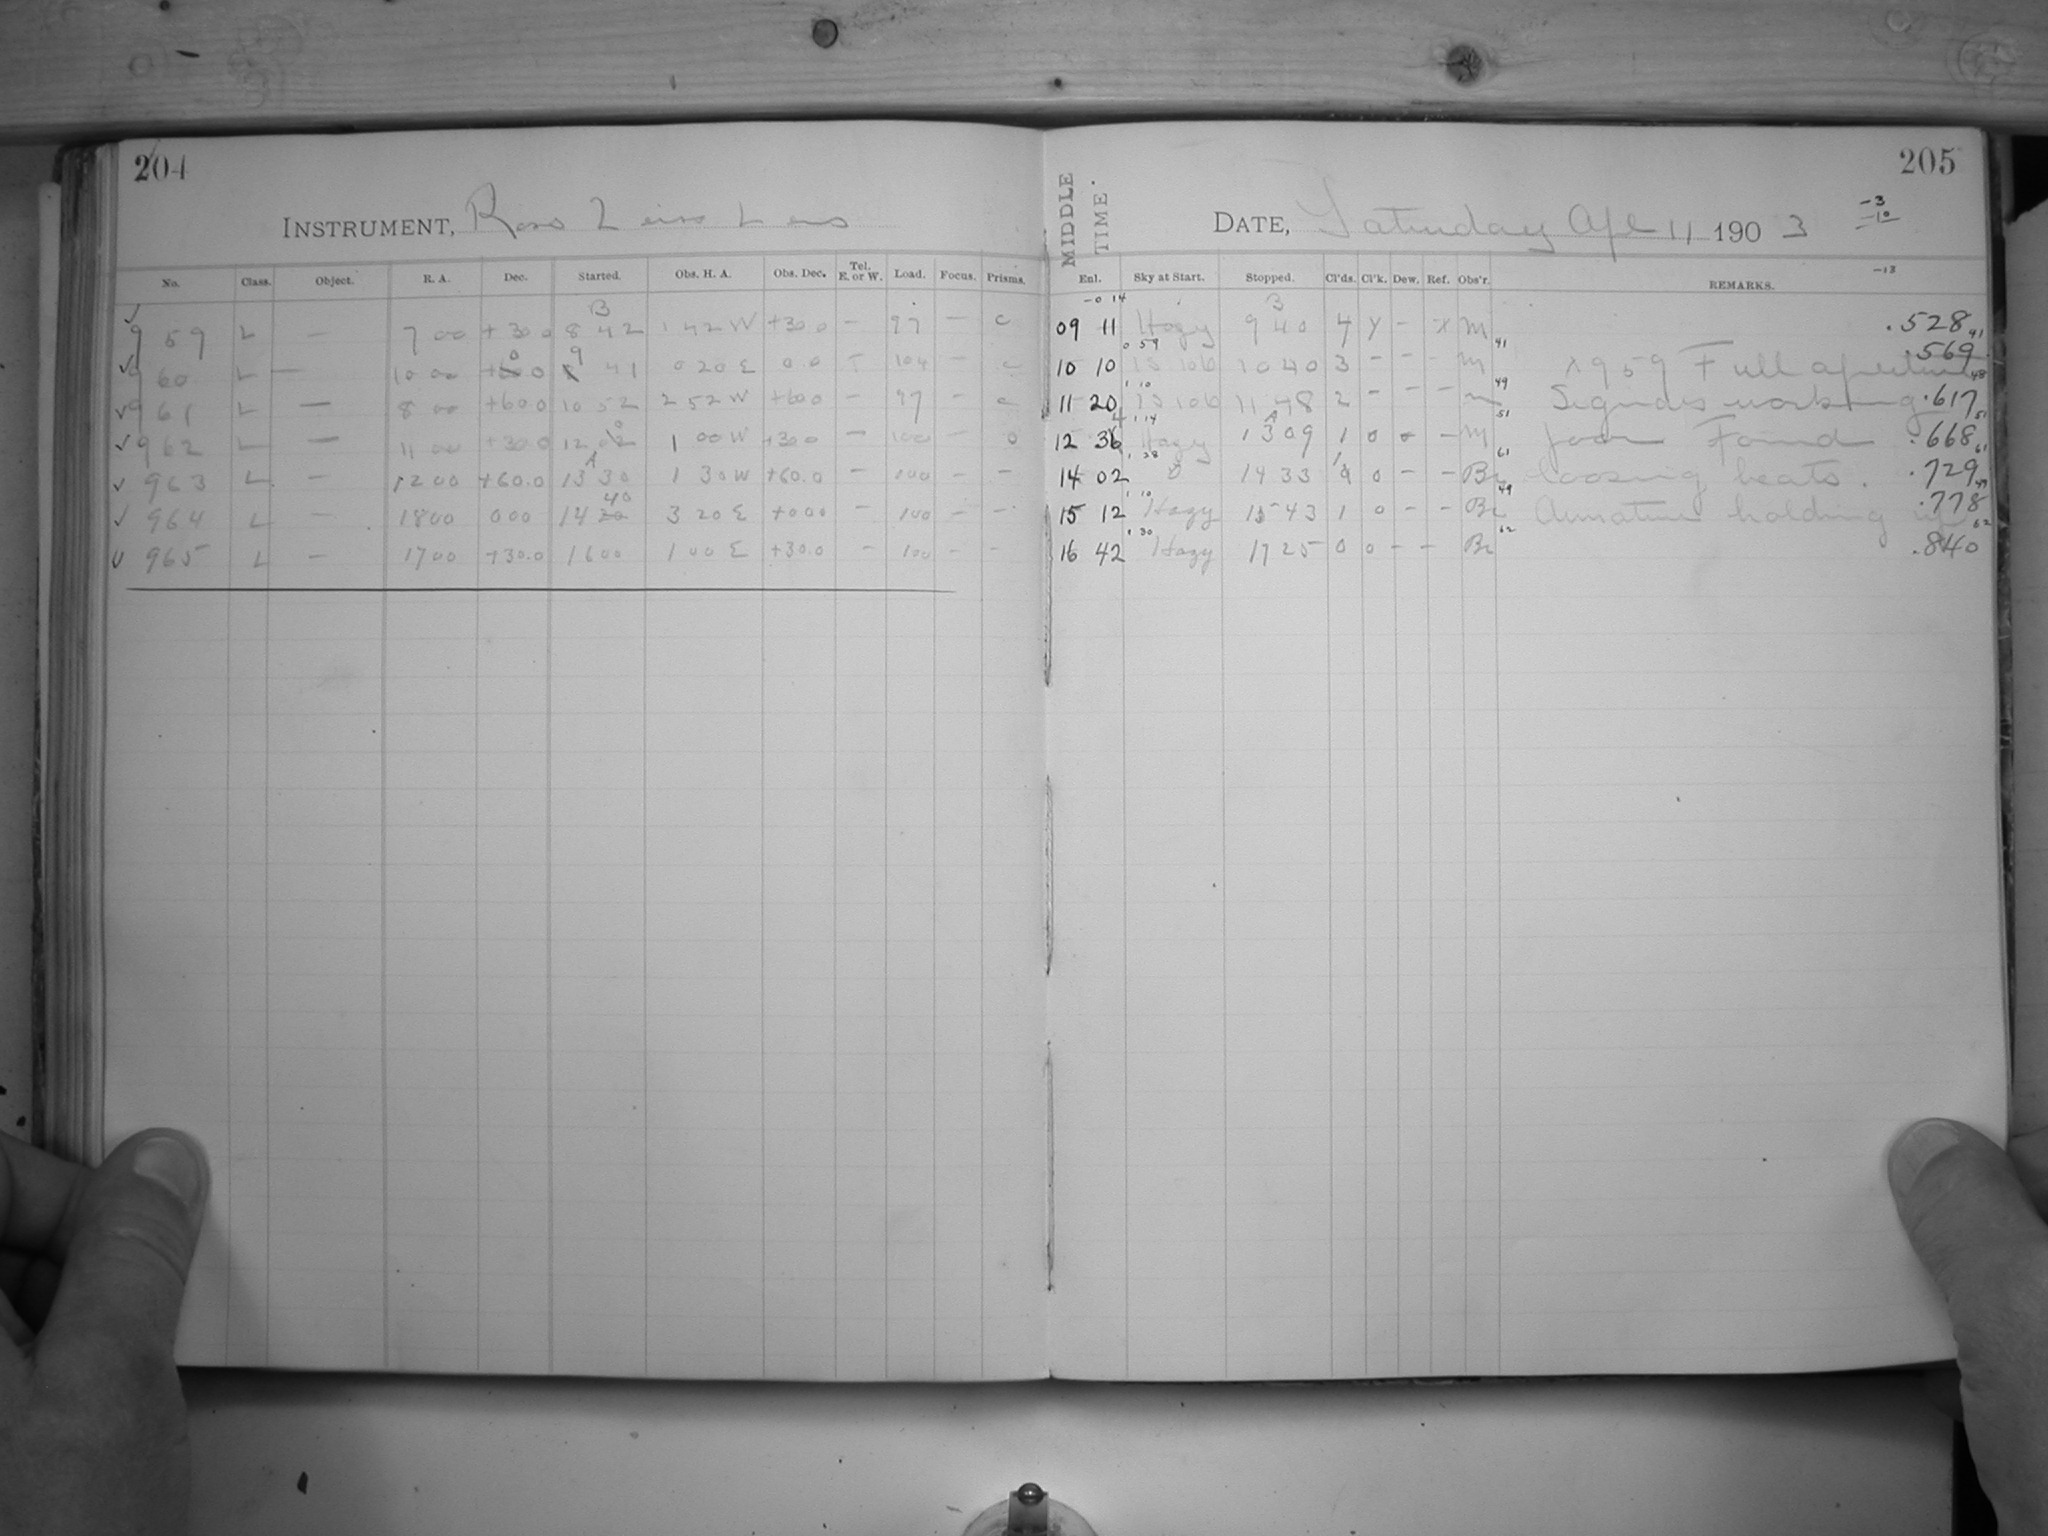 204
INSTRUMENT, Ross Zeiss Lens
No. Class. Object. R. A. Dec. Started. Obs. H. A. Obs. Dec. Tel. E. or W. Load. Focus. Prisms.
B
✓ 959 L — 7 00 +30 0 8 42 1 42 W +30.0 — 97 — c
✓ 960 L — 10 00 0 0 9 41 0 20 E 0.0 104 c
✓ 961 L — 8 00 +60 0 10 52 2 52 W +60.0 — 97 — c
✓ 962 L — 11 00 +30 0 12 02 1 00 W +30.0 — 100 — 0
A
✓ 963 L — 12 00 +60.0 13 30 1 30 W +60.0 — 100 — —
✓ 964 L — 18 00 0 00 14 40 3 20 E +0 00 — 100 — —
✓ 965 L — 17 00 +30.0 16 00 1 00 E +30.0 — 100 — —
205
MIDDLE TIME.
DATE, Saturday Apl 11 1903
-3
-10
-13
Enl. Sky at Start. Stopped. Cl'ds. Cl'k. Dew. Ref. Obs'r. REMARKS.
-0 14 B
09 11 Hazy 9 40 4 y – x M .528 41
0 59 41
10 10 10 40 3 – – – M x 959 Full aperture .569 48
1 10 49
11 20 11 48 2 – – – m working .617 51
1 14 A 51
12 36 Hazy 13 09 1 0 0 – M Found .668 61
1 28 61
14 02 0 14 33 0 – – Br loosing beats. .729 49
1 10 49
15 12 Hazy 15 43 1 0 – – Br Armature holding up .778 62
1 30 62
16 42 Hazy 17 25 0 0 – – Br .840